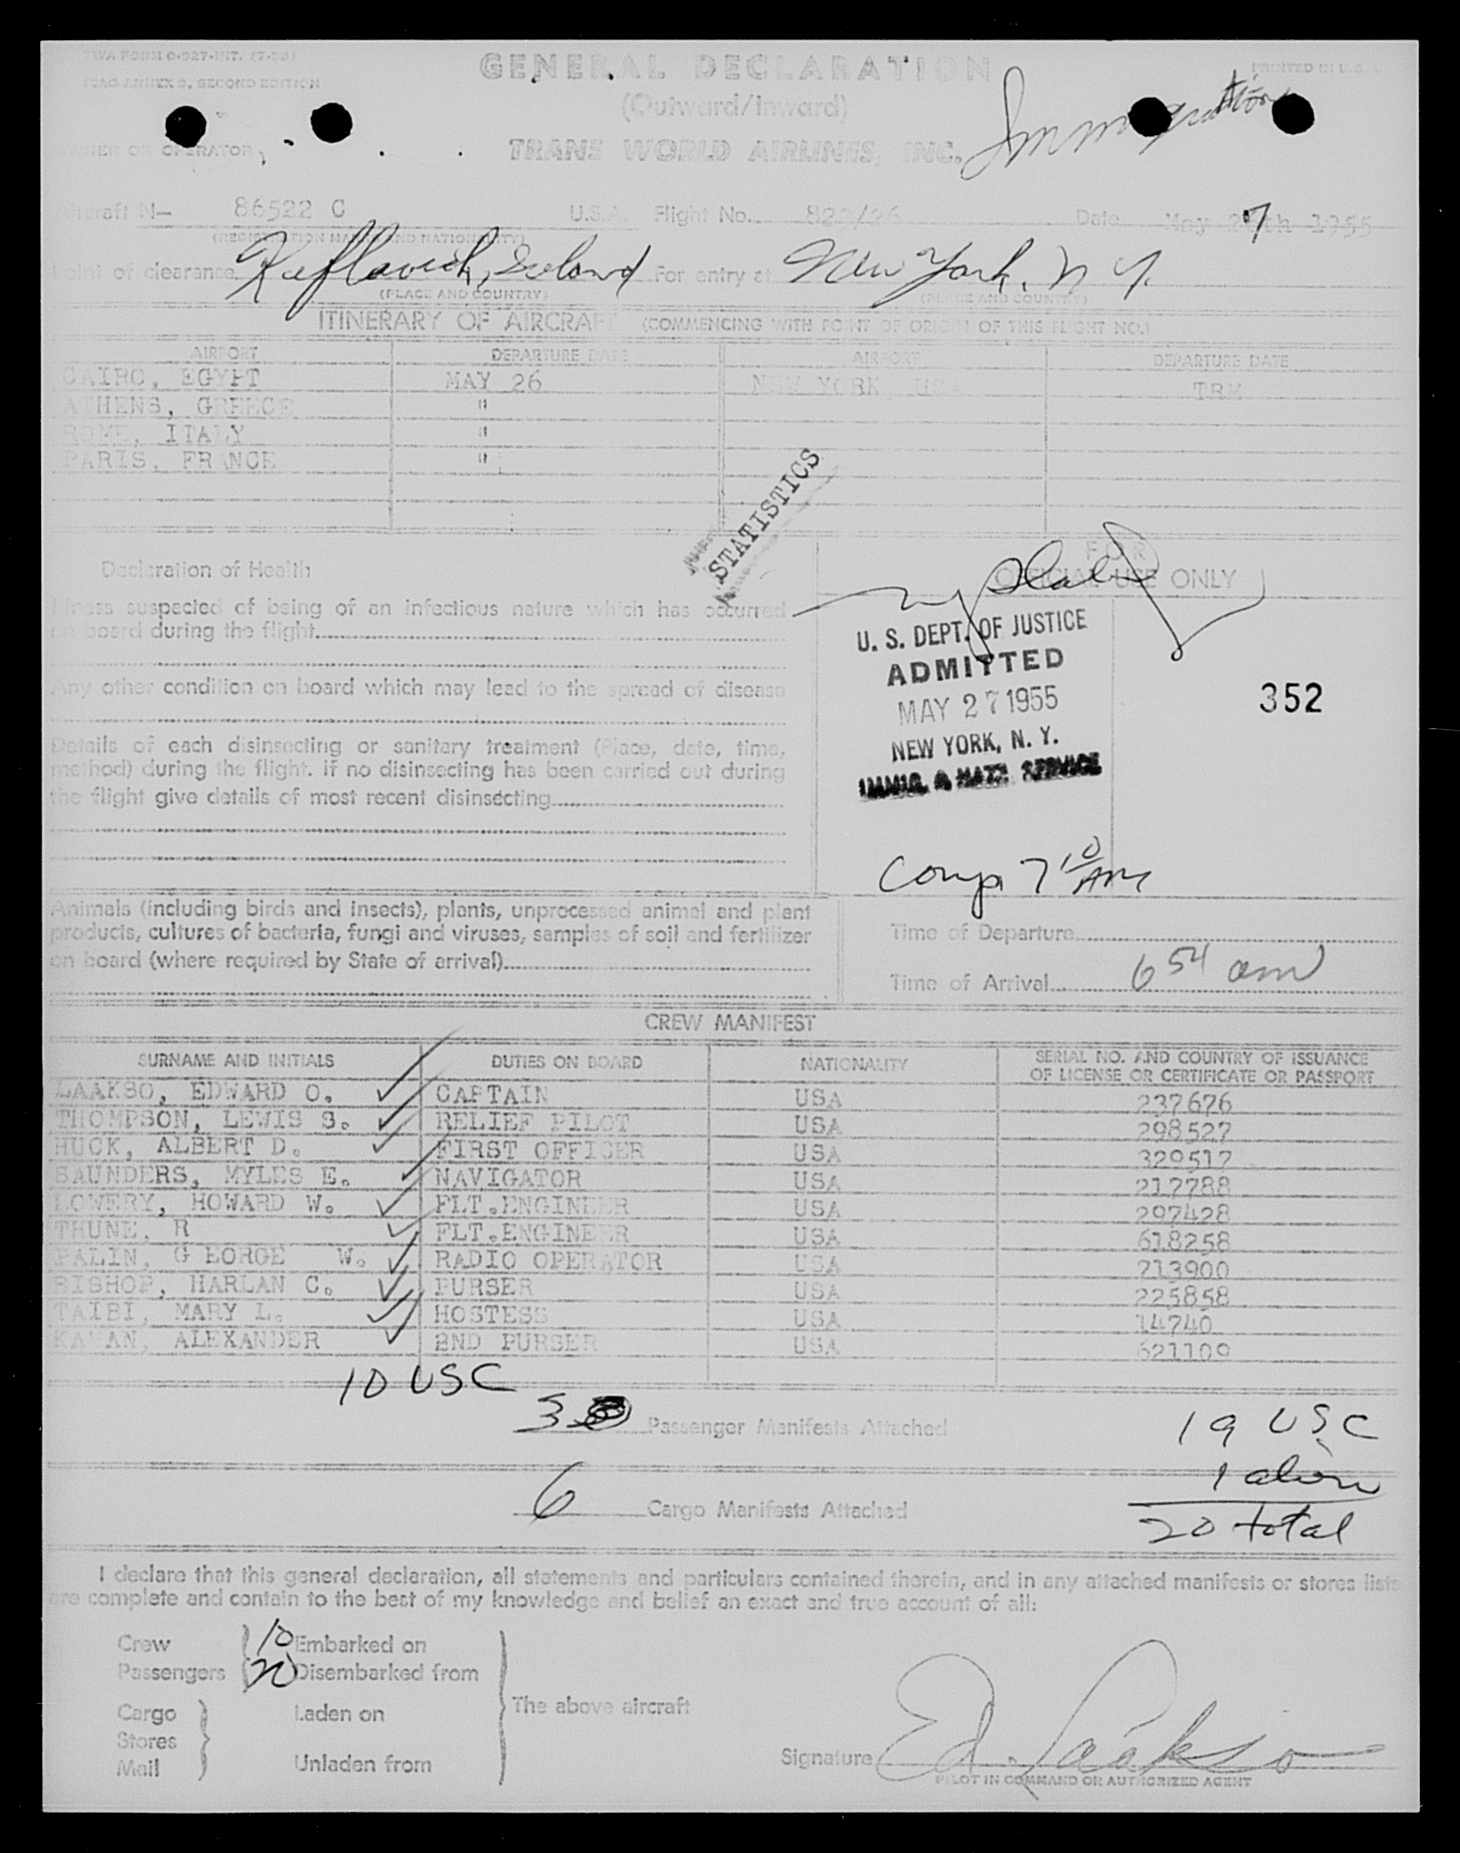 TWA FORM O-927-INT.
ICAO ANNEX 9, SECOND EDITION
GENERAL DECLARATION
PRINTED IN U.S.A.
(Outward/Inward)
Immigration
OWNER OR OPERATOR
TRANS WORLD AIRLINES, INC.
Aircraft N— 86522 C U.S.A. Flight No. Date May 1955
(REGISTRATION MARKS AND NATIONALITY)
Point of clearance Keflavick, Iceland For entry at New York, N.Y.
(PLACE AND COUNTRY) (PLACE AND COUNTRY)
ITINERARY OF AIRCRAFT (COMMENCING WITH POINT OF ORIGIN OF THIS FLIGHT NO.)
AIRPORT DEPARTURE DATE AIRPORT DEPARTURE DATE
CAIRO, EGYPT MAY 26 NEW YORK, USA TRM
ATHENS, GREECE "
ROME, ITALY "
PARIS, FRANCE "
STATISTICS
Declaration of Health
FOR
OFFICIAL USE ONLY
Illness suspected of being of an infectious nature which has occurred
on board during the flight
U. S. DEPT. OF JUSTICE
ADMITTED
MAY 27 1955
NEW YORK, N. Y.
IMMIG. & NATZ. SERVICE
352
Any other condition on board which may lead to the spread of disease
Details of each disinsecting or sanitary treatment (Place, date, time,
method) during the flight. If no disinsecting has been carried out during
the flight give details of most recent disinsecting
7 10 AM
Animals (including birds and insects), plants, unprocessed animal and plant
products, cultures of bacteria, fungi and viruses, samples of soil and fertilizer
on board (where required by State of arrival)
Time of Departure
Time of Arrival 6 54 am
CREW MANIFEST
SURNAME AND INITIALS DUTIES ON BOARD NATIONALITY SERIAL NO. AND COUNTRY OF ISSUANCE
OF LICENSE OR CERTIFICATE OR PASSPORT
LAAKSO, EDWARD O. CAPTAIN USA 237676
THOMPSON, LEWIS S. RELIEF PILOT USA 298527
HUCK, ALBERT D. FIRST OFFICER USA 329517
SAUNDERS, MYLES E. NAVIGATOR USA 217788
LOWERY, HOWARD W. FLT.ENGINEER USA 297428
THUNE, R FLT.ENGINEER USA 618258
PALIN, GEORGE W. RADIO OPERATOR USA 213900
BISHOP, HARLAN C. PURSER USA 225858
TAIBI, MARY L. HOSTESS USA 14740
ALEXANDER 2ND PURSER USA 621109
10 USC
3 Passenger Manifests Attached
19 USC
1 alien
6 Cargo Manifests Attached
20 total
I declare that this general declaration, all statements and particulars contained therein, and in any attached manifests or stores lists
are complete and contain to the best of my knowledge and belief an exact and true account of all:
Crew 10 Embarked on
Passengers 20 Disembarked from
The above aircraft
Cargo Laden on
Stores
Mail Unladen from
Signature Ed. Laakso
PILOT IN COMMAND OR AUTHORIZED AGENT